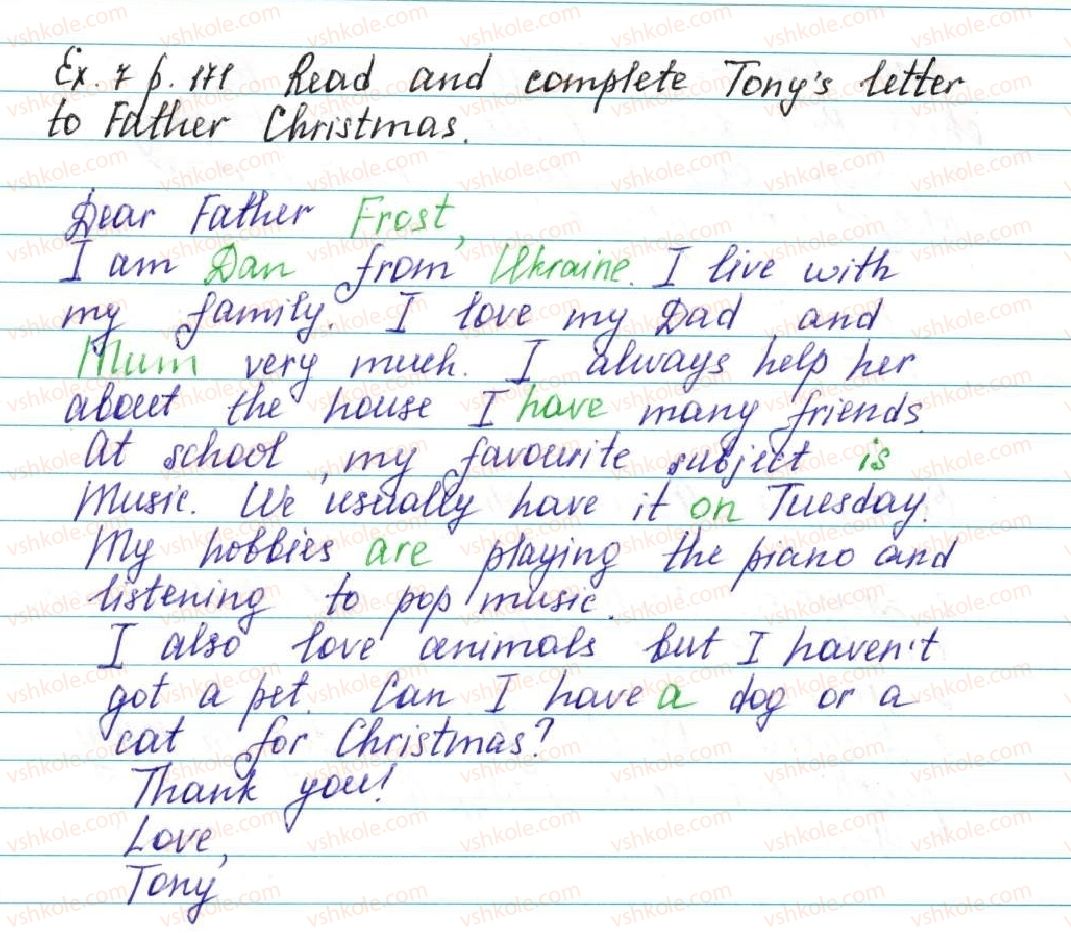 Ex. 7 p. 171 Read and complete Tony's letter
to Father Christmas.
Dear Father Frost,
I am Dan from Ukraine. I live with
my family. I love my Dad and
Mum very much. I always help her
about the house I have many friends.
At school, my favourite subject is
Music. We usually have it on Tuesday.
My hobbies are playing the piano and
listening to pop music.
I also love animals but I haven't
got a pet. Can I have a dog or a
cat for Christmas?
Thank you!
Love,
Tony
vshkole.com